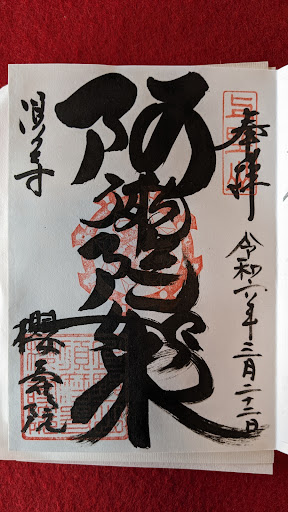 奉拝
令和六年三月二十二日
阿彌陀如来
須磨寺
櫻壽院